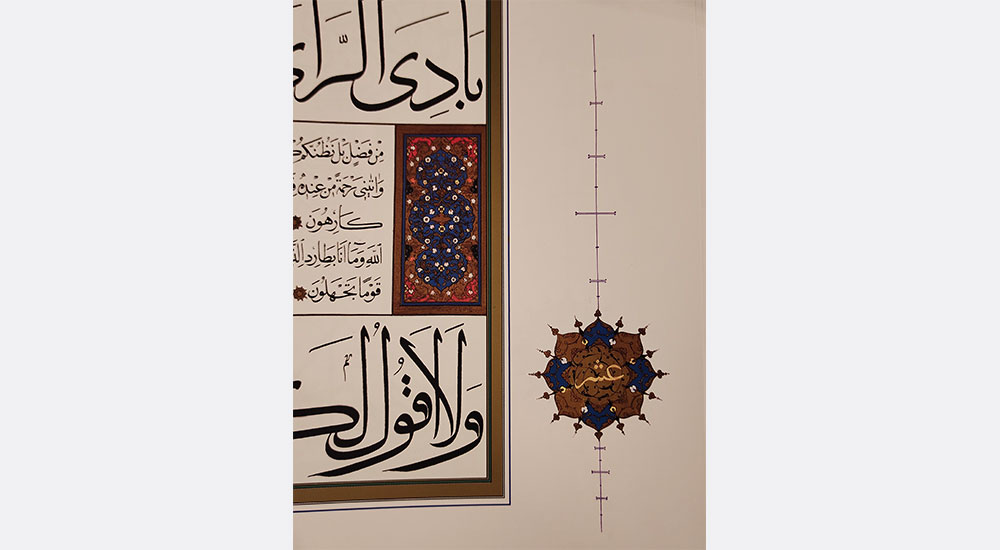 بَادِیَ الرَّأ
مِنْ فَضْلٍ بَلْ نَظُنُّكُمْ
وَاٰتٰینی رَحْمَةً مِنْ عِنْدِهٖ
كَارِهُونَ
اللّٰهِ وَمَٓا اَنَا۬ بِطَارِدِ
قَوْمًا تَجْهَلُونَ
وَلَٓا اَقُولُ
عشر